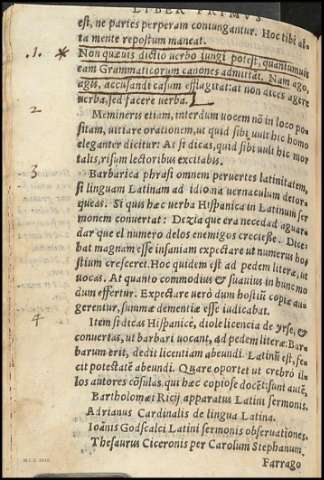 LIBER PRIMVS
est, ne partes perperam coniungantur. Hoc tibi al-
ta mente repostum maneat.
.1. * Non quæuis dictio uerbo iungi potest, quantumuis
eam Grammaticorum canones admittāt. Nam ago,
agis, accusandi casum efflagitat: at non dices agere
uerba, sed facere uerba.
2 Memineris etiam, interdum uocem nō in loco po-
sitam, uitiare orationem, ut quid sibi uult hic homo
eleganter dicitur. At si dicas, quid sibi uult hic mor
talis, risum lectoribus excitabis.
3 Barbarica phrasi omnem peruertes latinitatem,
si linguam Latinam ad idioma uernaculum detor
queas. Si quis hæc uerba Hispanica in Latinum ser
monem conuertat: Dezia que era necedad aguar
dar que el numero delos enemigos creciesse. Dice
bat magnam esse insaniam expectare ut numerus ho
stium cresceret. Hoc quidem est ad pedem literæ, ut
uocas. At quanto commodius & suauius in hunc mo
dum effertur. Expectare uerò dum hostiū copiæ au
gerentur, summæ dementiæ esse iudicabat.
4 Item si dicas Hispanicè, diole licencia de yrse, &
conuertas, ut barbari uocant, ad pedem literæ. Bar
barum erit, dedit licentiam abeundi. Latinū est, fe
cit potestatē abeundi. Quare oportet ut crebro il
los autores cōsulas, qui hæc copiose docēt: sunt autē,
Bartholomæi Ricij apparatus Latini sermonis.
Adrianus Cardinalis de lingua Latina.
Ioānis Godscalci Latini sermonis obseruationes.
Thesaurus Ciceronis per Carolum Stephanum.
Farrago